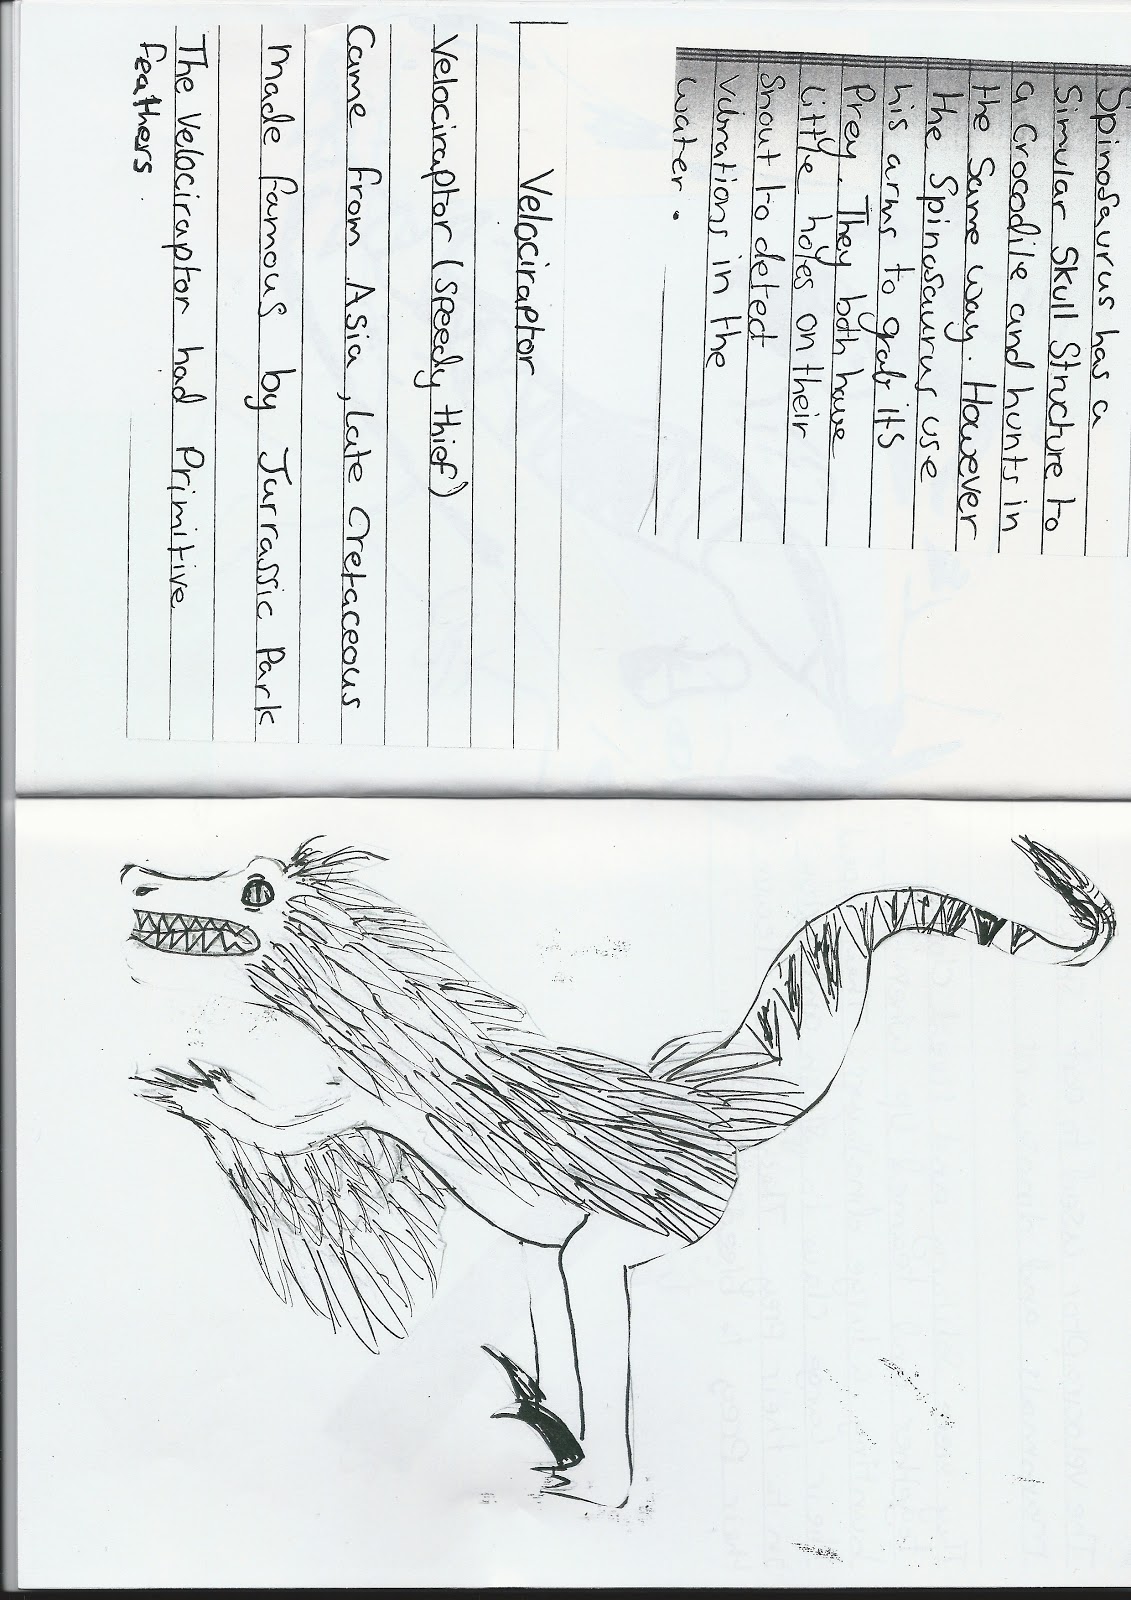 Spinosaurus has a
Simular Skull Structure to
a Crocodile and hunts in
the Same way. However
the Spinosaurus use
his arms to grab its
Prey. They both have
little holes on their
Snout to deted
vibrations in the
water.
Velociraptor
Velociraptor (speedy thief)
Came from Asia, Late Cretaceous
made famous by Jurrassic Park
The Velociraptor had Primitive
feathers